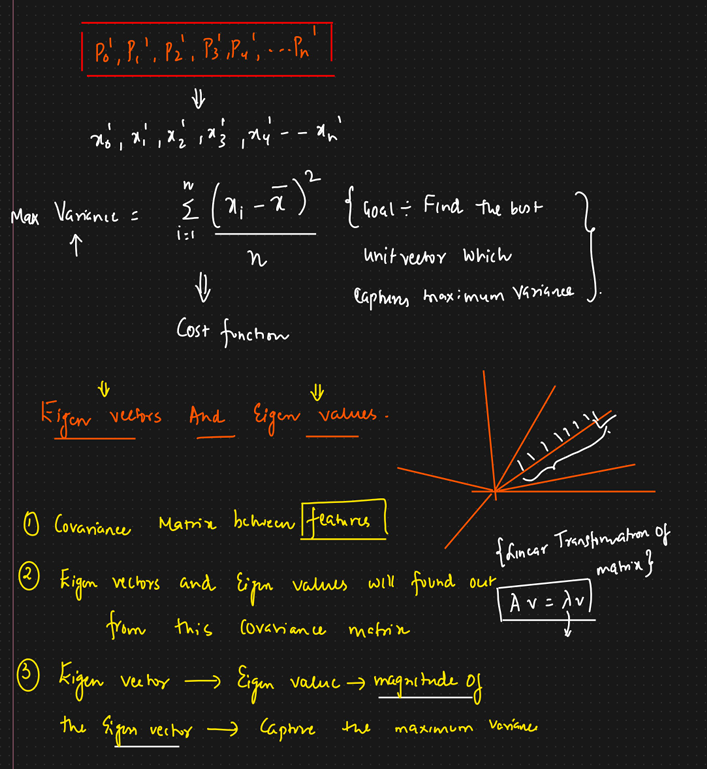 P₀', P₁', P₂', P₃', P₄', ... Pₙ'
⇓
x₀', x₁', x₂', x₃', x₄' - - xₙ'
Max Variance = Σᵢ₌₁ⁿ (xᵢ - x̄)² / n { Goal ÷ Find the best
unit vector which
Captures maximum variance }.
⇓
Cost function
Eigen vectors And Eigen values.
① Covariance Matrix between features
{Linear Transformation of
matrix}
② Eigen vectors and Eigen values will found out
from this covariance matrix
A v = λ v
③ Eigen vector → Eigen value → magnitude of
the Eigen vector → Capture the maximum variance